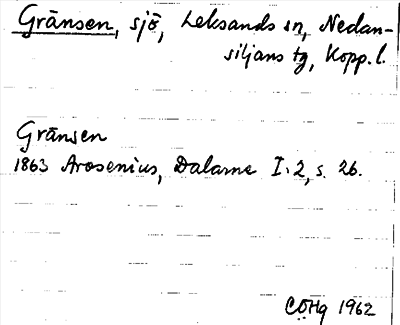 Gränsen, sjö, Leksands sn, Nedan-
siljans tg, Kopp. l.
Gränsen
1863 Arosenius, Dalarne I:2, s. 26.
CÖHg 1962